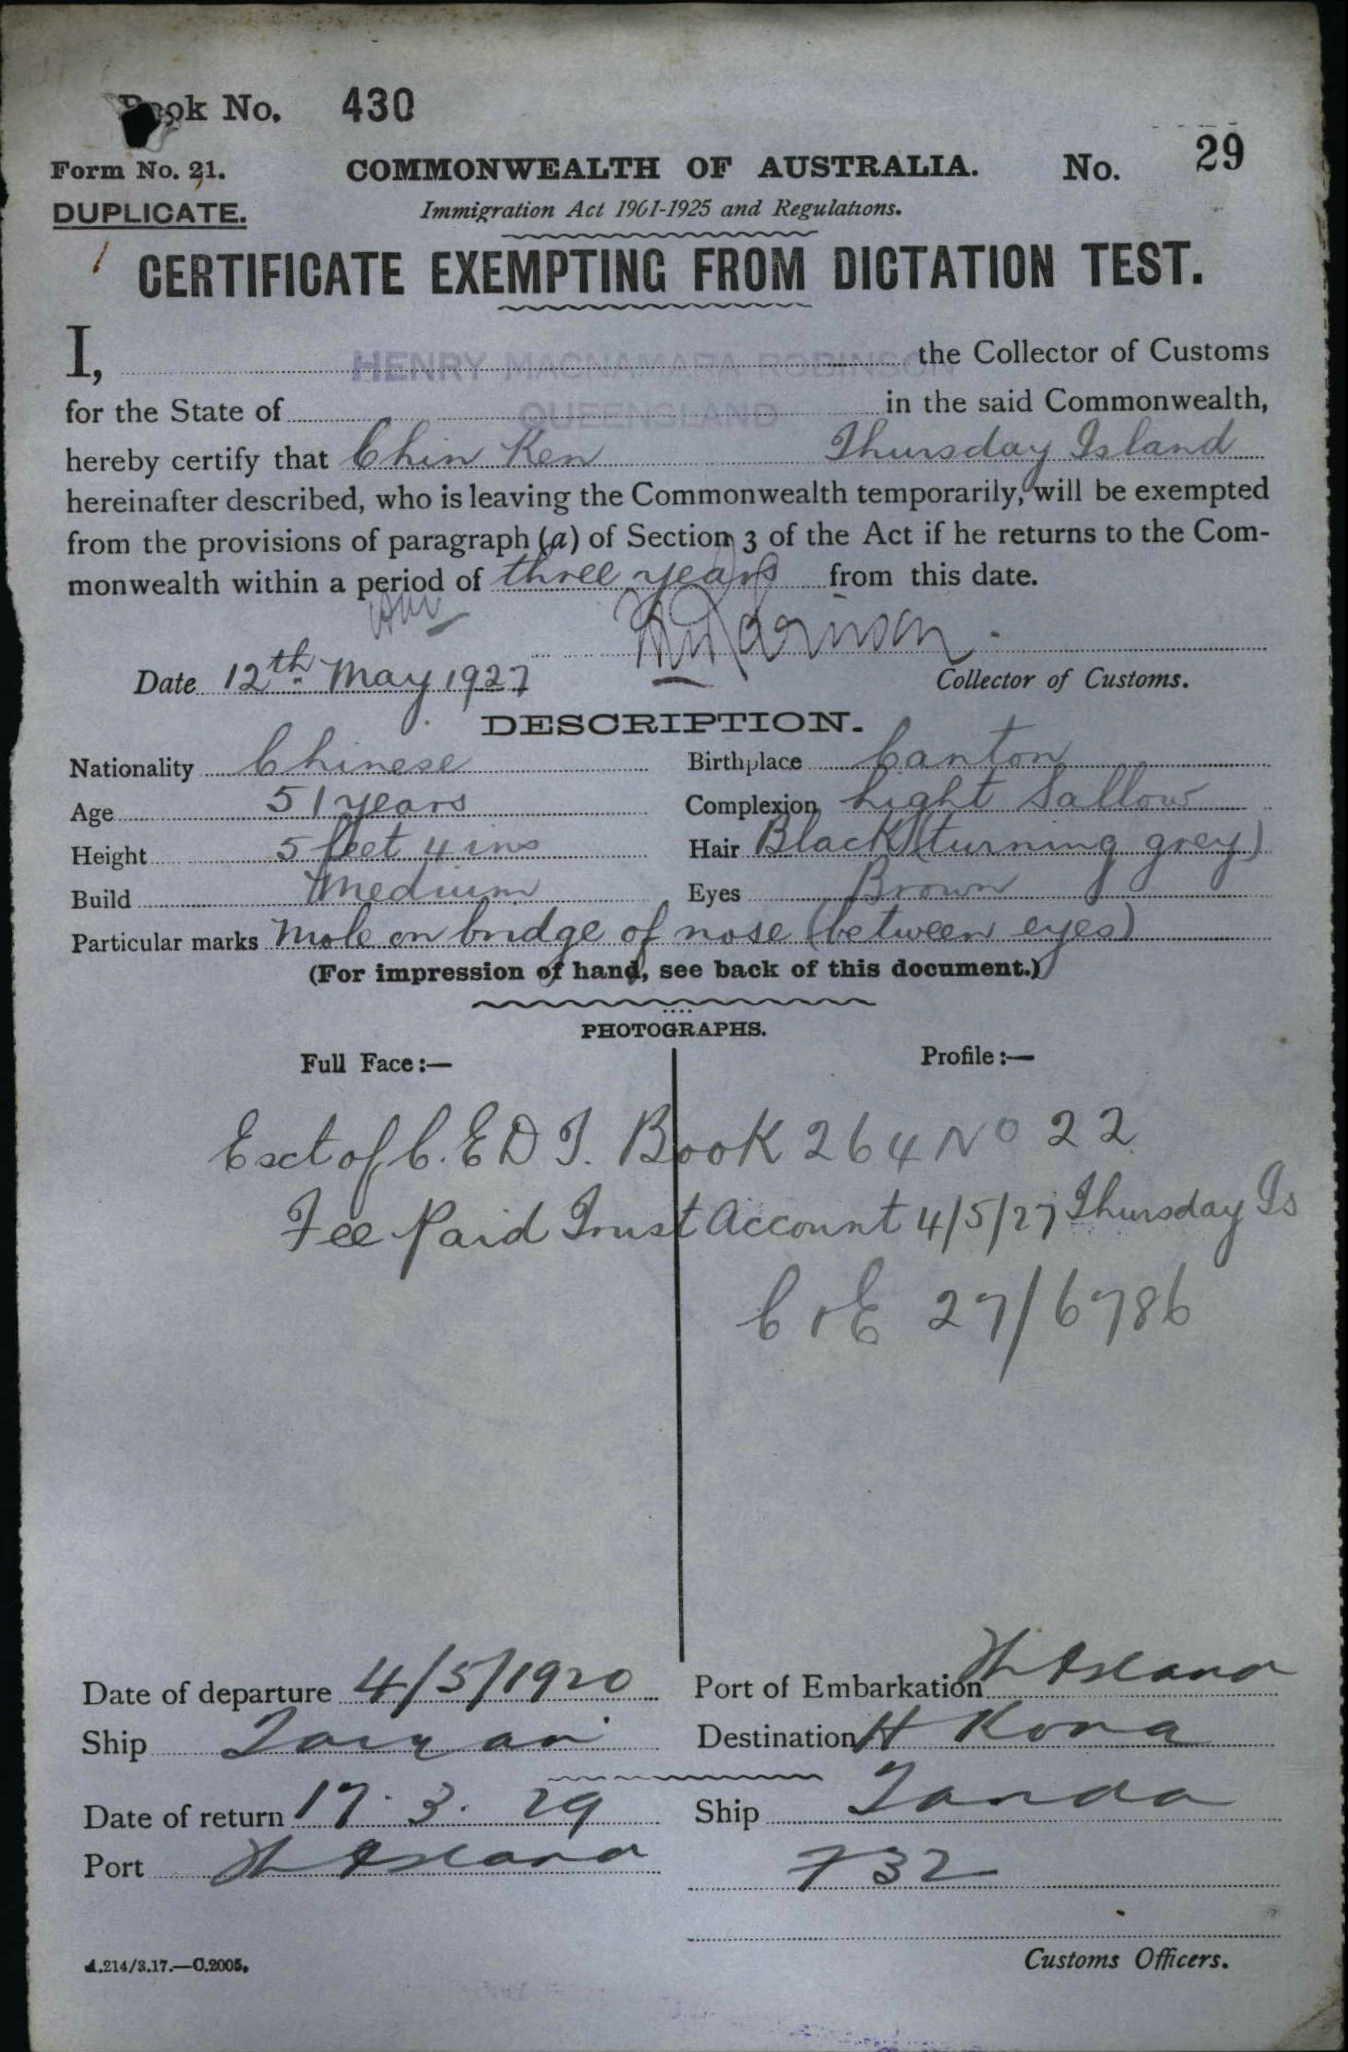 Book No. 430
Form No. 21. COMMONWEALTH OF AUSTRALIA. No. 29
DUPLICATE. Immigration Act 1901-1925 and Regulations.
CERTIFICATE EXEMPTING FROM DICTATION TEST.
I, HENRY MACNAMARA ROBINSON the Collector of Customs
for the State of QUEENSLAND in the said Commonwealth,
hereby certify that Chin Ken Thursday Island
hereinafter described, who is leaving the Commonwealth temporarily, will be exempted
from the provisions of paragraph (a) of Section 3 of the Act if he returns to the Com-
monwealth within a period of three years from this date.
Date 12th May 1927 Collector of Customs.
DESCRIPTION.
Nationality Chinese Birthplace Canton
Age 51 years Complexion Light Sallow
Height 5 feet 4 ins Hair Black (turning grey)
Build Medium Eyes Brown
Particular marks Mole on bridge of nose (between eyes)
(For impression of hand, see back of this document.)
PHOTOGRAPHS.
Full Face:— Profile:—
Exct of C.E.D T. Book 264 No 22
Fee Paid Trust Account 4/5/27 Thursday Is
C & E 27/6786
Date of departure 4/5/1920 Port of Embarkation Th Island
Ship Taiyuan Destination H Kong
Date of return 17.3.29 Ship Tanda
Port Th Island 732
Customs Officers.
A.214/3.17.—C.2005.